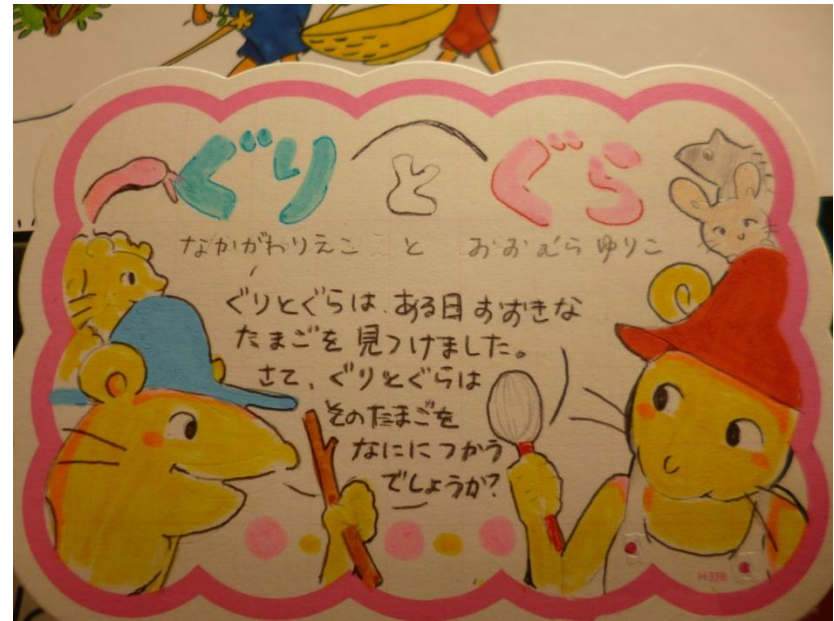 ぐりとぐら
なかがわりえこ と おおむらゆりこ
ぐりとぐらは、ある日おおきな
たまごを見つけました。
さて、ぐりとぐらは
そのたまごを
なににつかう
でしょうか?